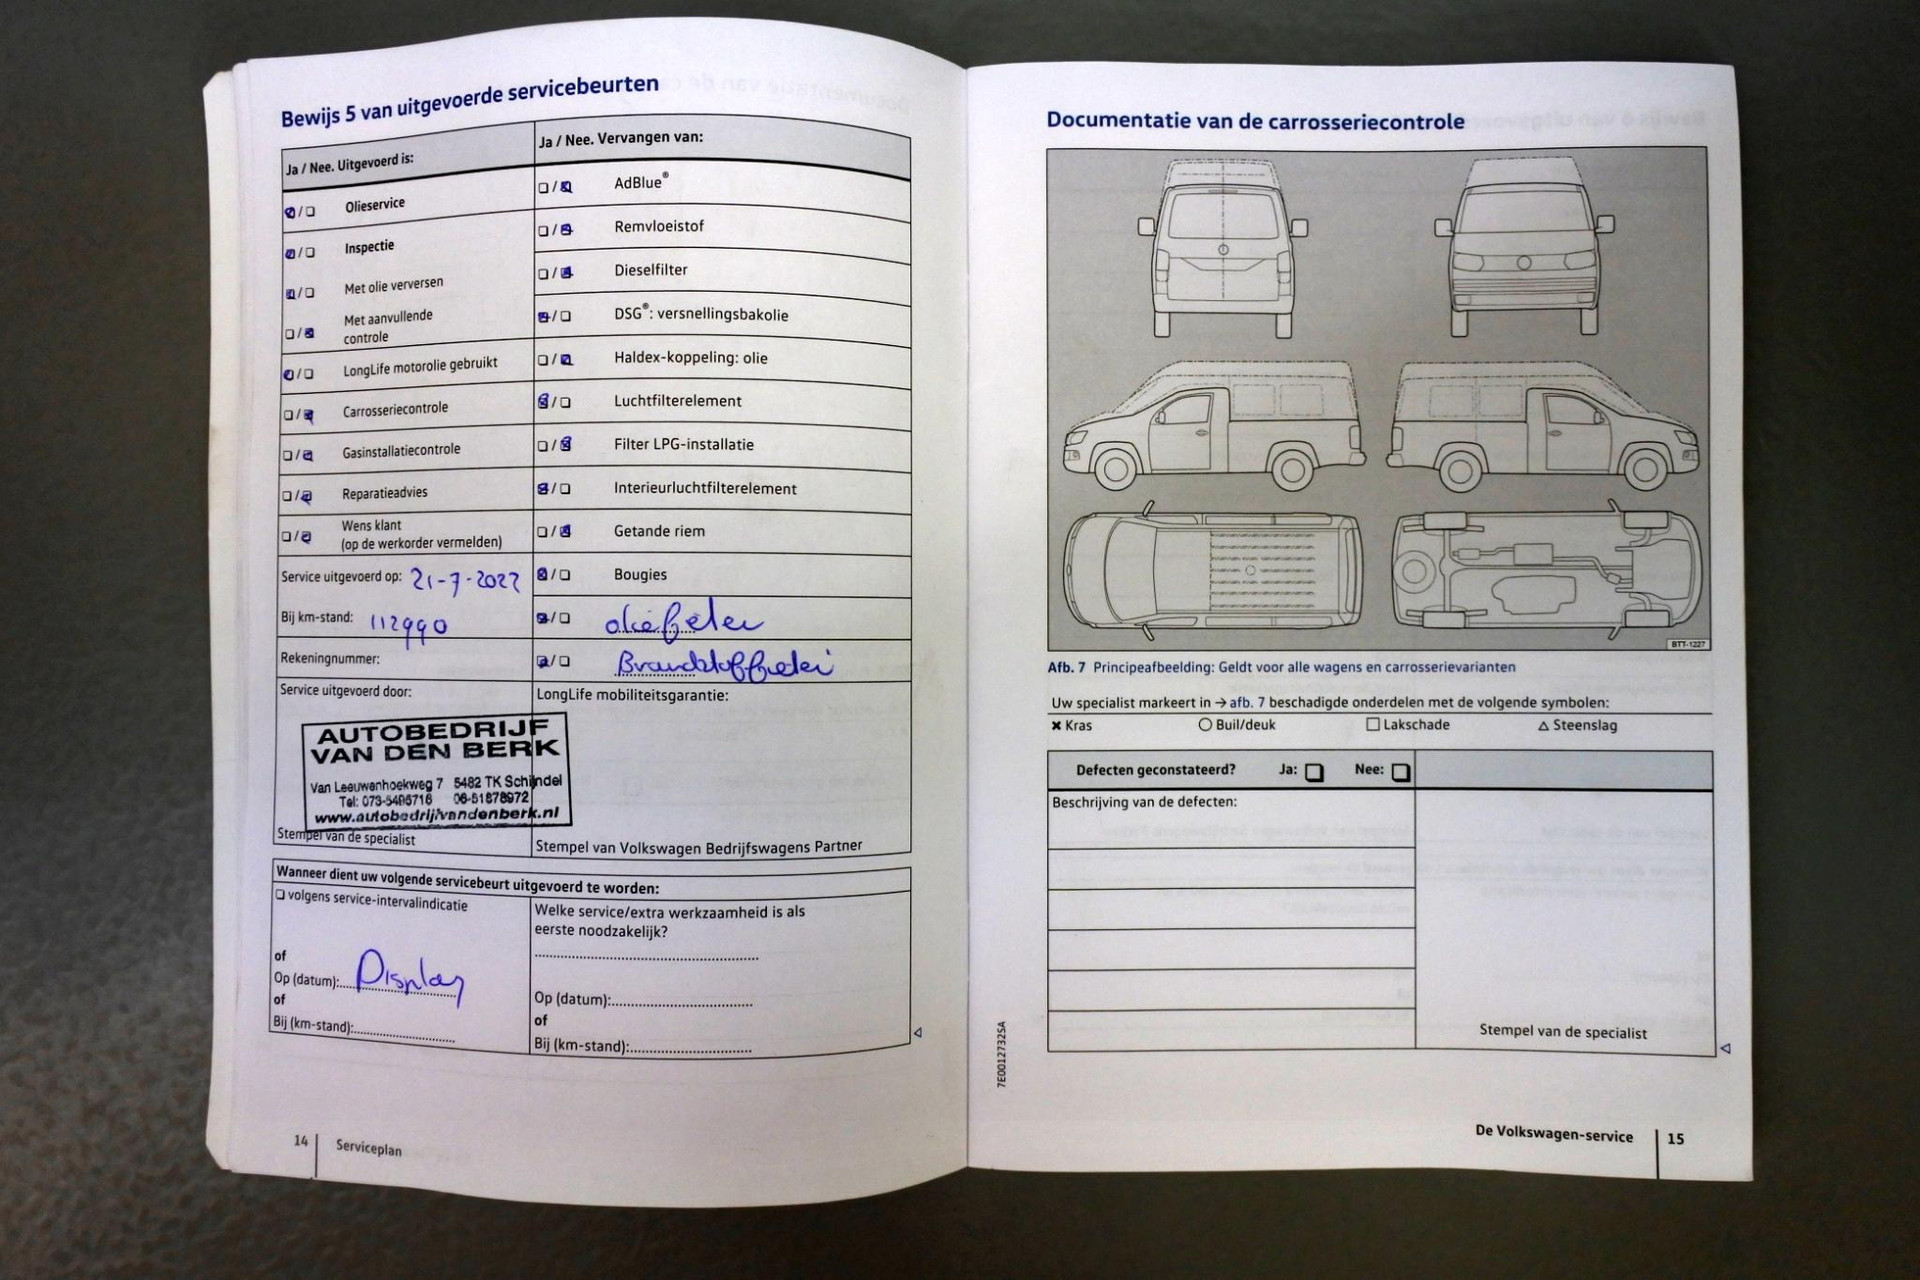 Bewijs 5 van uitgevoerde servicebeurten
Ja / Nee. Uitgevoerd is:
Olieservice
Inspectie
Met olie verversen
Met aanvullende
controle
LongLife motorolie gebruikt
Carrosseriecontrole
Gasinstallatiecontrole
Reparatieadvies
Wens klant
(op de werkorder vermelden)
Service uitgevoerd op: 21-7-2022
Bij km-stand: 112990
Rekeningnummer:
Service uitgevoerd door:
AUTOBEDRIJF
VAN DEN BERK
Van Leeuwenhoekweg 7 5482 TK Schijndel
Tel: 073-5495716 06-51878972
www.autobedrijfvandenberk.nl
Stempel van de specialist
Ja / Nee. Vervangen van:
AdBlue®
Remvloeistof
Dieselfilter
DSG®: versnellingsbakolie
Haldex-koppeling: olie
Luchtfilterelement
Filter LPG-installatie
Interieurluchtfilterelement
Getande riem
Bougies
LongLife mobiliteitsgarantie:
Stempel van Volkswagen Bedrijfswagens Partner
Wanneer dient uw volgende servicebeurt uitgevoerd te worden:
volgens service-intervalindicatie
of
Op (datum): Display
of
Bij (km-stand):
Welke service/extra werkzaamheid is als
eerste noodzakelijk?
Op (datum):
of
Bij (km-stand):
14 Serviceplan
Documentatie van de carrosseriecontrole
BTT-1227
Afb. 7 Principeafbeelding: Geldt voor alle wagens en carrosserievarianten
Uw specialist markeert in → afb. 7 beschadigde onderdelen met de volgende symbolen:
✖ Kras ○ Buil/deuk □ Lakschade △ Steenslag
Defecten geconstateerd? Ja: Nee:
Beschrijving van de defecten:
Stempel van de specialist
7E0012732SA
De Volkswagen-service 15